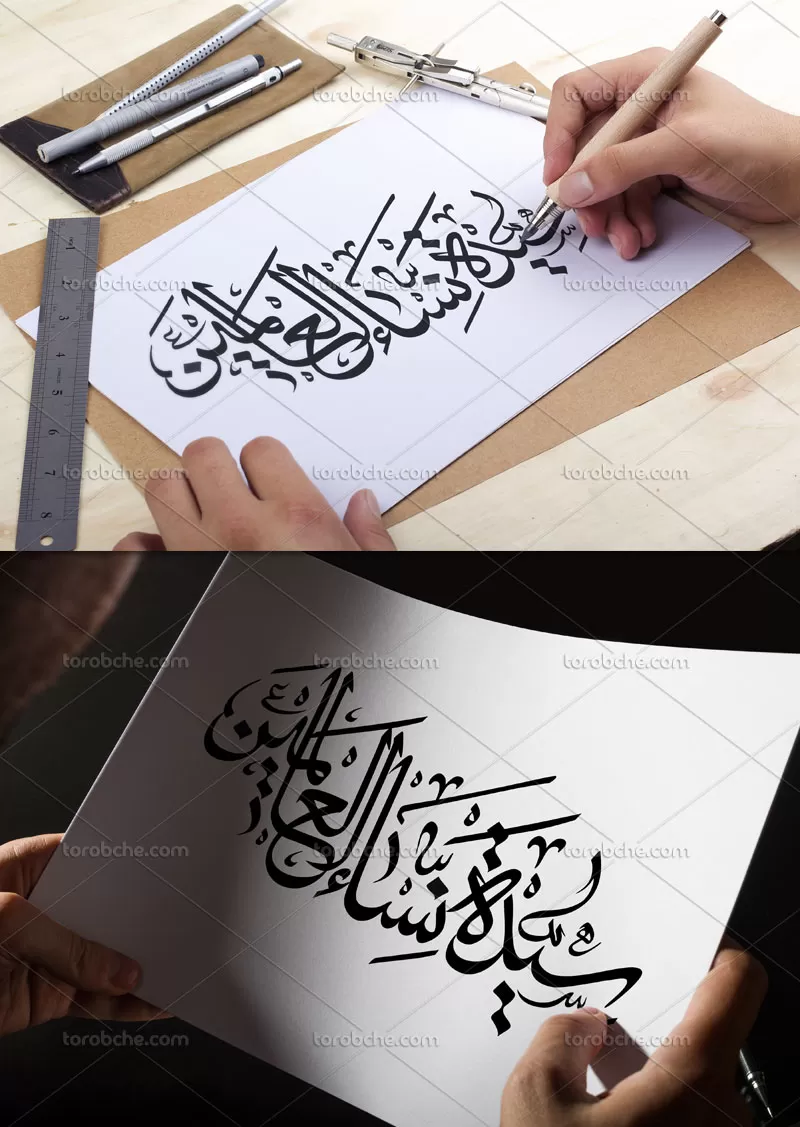 torobche.com torobche.com torobche.com
سیدة نساء العالمین
torobche.com torobche.com torobche.com
1
2
3
4
5
6
7
8
torobche.com torobche.com torobche.com
torobche.com torobche.com torobche.com
سیدة نساء العالمین
torobche.com torobche.com torobche.com
torobche.com torobche.com torobche.com